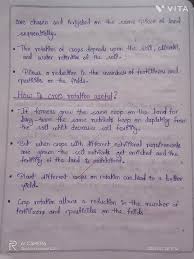 are chosen and irrigated on the same space of land
sequentially.
• The rotation of crops depends upon the soil, climate,
and water retention of the soil.
• Allows a reduction in the number of fertilisers and
pesticides on the fields.
How is crop rotation useful?
• If farmers grow the same crop on the land for
long term the same nutrients keep on depleting from
the soil which decreases soil fertility.
• But when crops with different nutritional requirements
are grown the soil nutrients get enriched and the
fertility of the land is maintained.
• Plant different crops on rotation can lead to a better
yield.
• Crop rotation allows a reduction in the number of
fertilisers and pesticides on the fields.
VITA
AI CAMERA